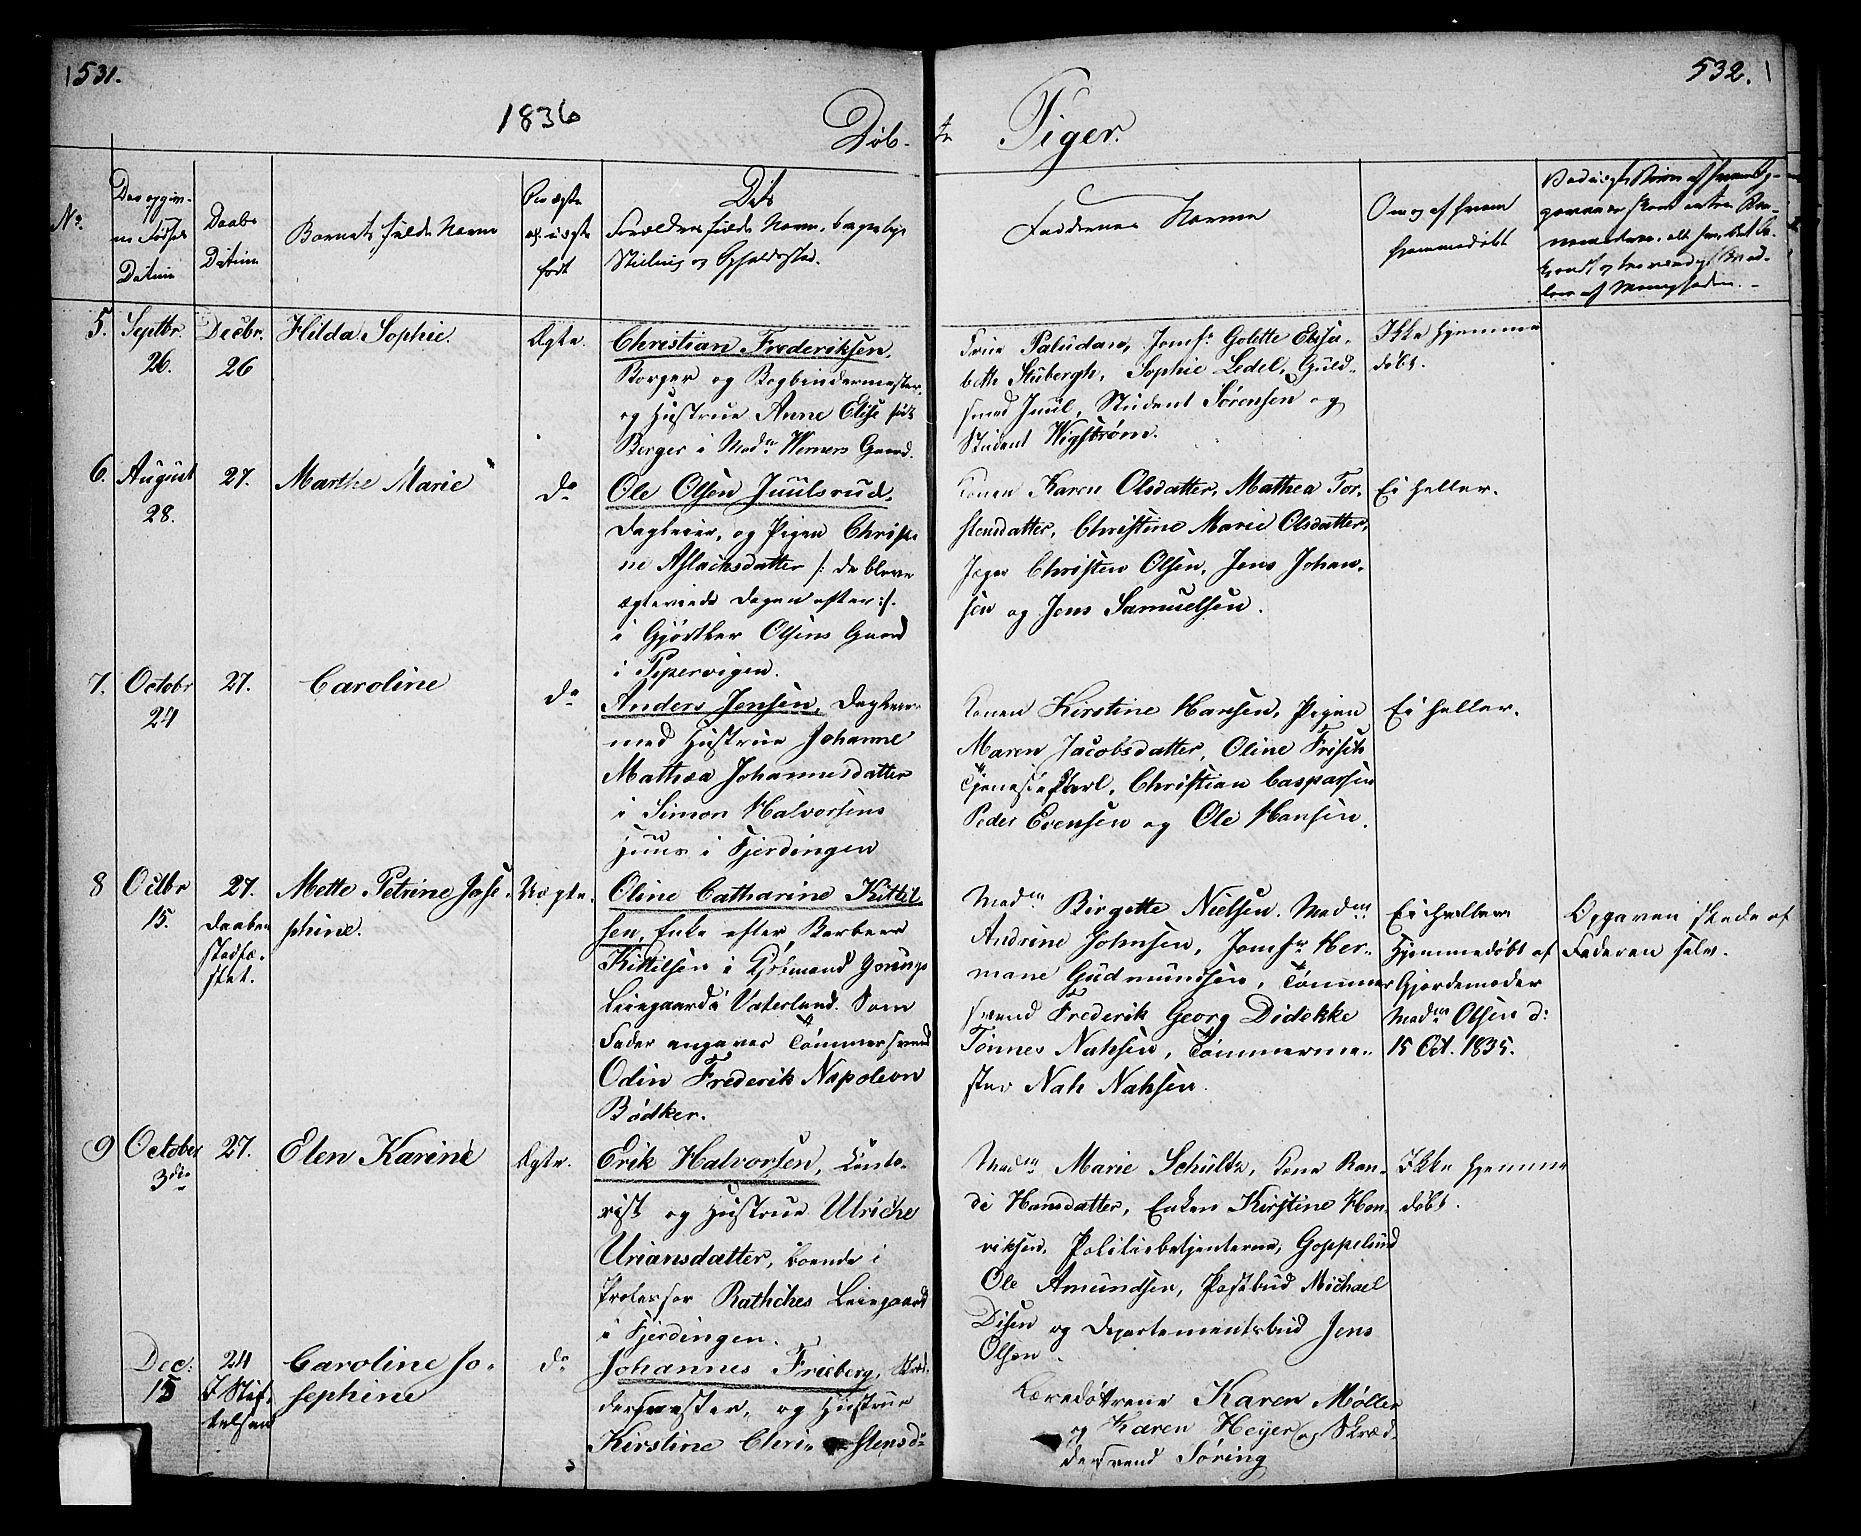 531.
532.
1836
Døb-
te
Piger.
No.
Den opgiv-
ne Fødsels
Datum
Daabs
Datum
Barnets fulde Navn
Om ægte
el. uægte
født
Dets
Forældres fulde Navne, borgerlige
Stilling og Opholdssted.
Faddernes Navne
Om og af hvem
hjemmedøbt
5. Septbr.
26.
Decbr.
26
Hilda Sophie.
Ægte.
Christian Frederiksen,
Borger og Bogbindermester,
og Hustrue Anne Elise født
Berger i Madm Werners Gaard.
Frue Paludan, Jomfr Golette Elisa-
beth Stubergh, Sophie Ledel, Guld-
smed Juul, Student Sørensen og
Student Wigstrøm.
Ikke hjemme
døbt.
6. August
28.
27.
Marthe Marie
Do
Ole Olsen Juulsrud,
Dagleier, og Pigen Christi-
ne Aslachsdatter /: de bleve
ægteviede Dagen efter :/.
i Gjørtler Olsens Gaard
i Pipervigen.
Konen Karen Olsdatter, Mathea Tor-
stensdatter, Christine Marie Olsdatter,
Jæger Christen Olsen, Jens Johan-
sen og Jens Samuelsen.
Ei heller.
7. Octobr
24
27.
Caroline
do
Anders Jensen, Dagleier
med Hustrue Johanne
Mathea Johannesdatter
i Simon Halvorsens
Huus i Fjerdingen
Konen Kirstine Hansen, Pigen
Maren Jacobsdatter, Oline Frisch
Tjenestekarl, Christian Caspersen
Peder Evensen og Ole Hansen.
Ei heller.
8 Octbr
15.
27.
Daaben
stadfæ-
stet.
Mette Petrine Jose-
phine.
Uægte.
Oline Catharine Kittil
sen, Enke efter Barbeer
Kittelsen i Grosmand Youngs
Leiegaard i Vaterland. Som
Fader angaves Tømmersvend
Odin Frederik Napoleon
Bødker.
Madm Birgette Nielsen. Madm
Andrine Johnsen, Jomfr Her-
mane Gudmundsen, Tømmer
svend Frederik Georg Didekke
Tønnes Nahsen, Tømmerme-
ster Nah Nahsen.
Ei heller
Hjemmedøbt af
Gjordemoder
Madm Olsen d:
15 Oct. 1835.
Opgaven skede af
Faderen selv.
9 October
3die
27.
Elen Karine
Ægte.
Erik Halvorsen, Conto-
rist og Hustrue Ulriche
Uriansdatter, boende i
Professor Rathches Leiegaard
i Fjerdingen.
Madm Marie Schultz, Kone Ran-
di Hansdatter, Enken Kirstine Hen-
riksen, Politiebetjenterne, Goppelund
Ole Amundsen, Postbud Michael
Disen og Departementsbud Jens
Olsen.
Ikke hjemme
døbt.
Dec:
15
24
I Stif-
telsen
Caroline Jo-
sephine
do
Johannes Frieberg, Skræd-
dermester, og Hustrue
Kirstine stensd:
Læredøttrene Karen Møller
og Karen Heyer og Skræd-
dersvend Søring